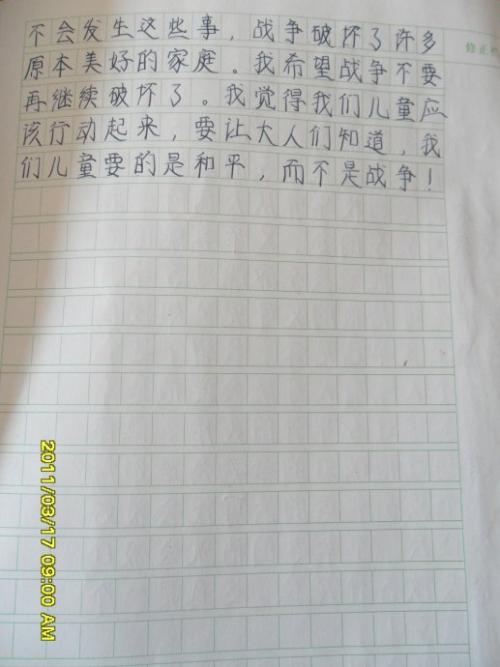 不会发生这些事，战争破坏了许多
原本美好的家庭。我希望战争不要
再继续破坏了。我觉得我们儿童应
该行动起来，要让大人们知道，我
们儿童要的是和平，而不是战争！
修正
2011/03/17 09:00 AM